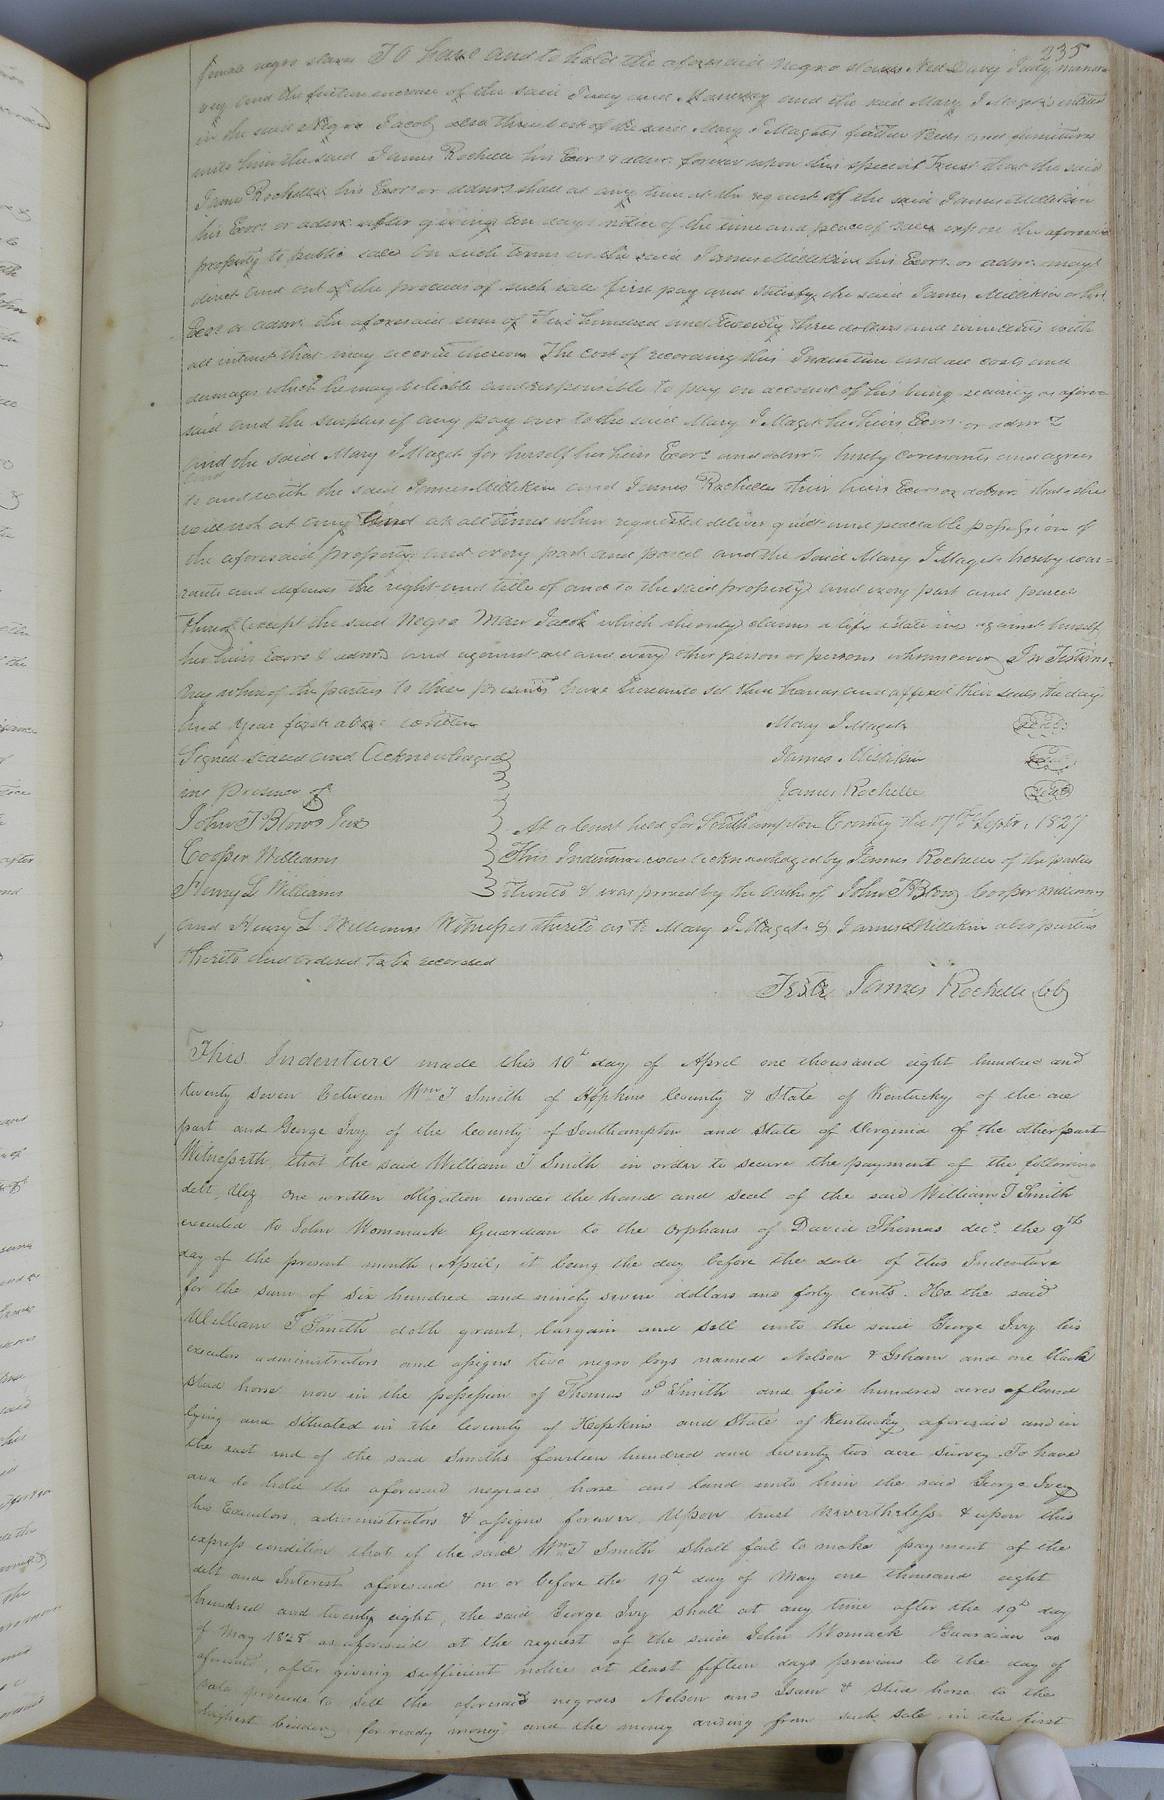 235
female negro slaves To have and to hold the aforesaid negro slaves Ned Davy Judy
and the future increase of the said Judy and and the said Mary J Magets interest
in the said Negro Jacob, also three best of the said Mary J Magets feather Beds and furniture
unto him the said James Rochelle his Exors & admrs. forever upon this special Trust that the said
James Rochelle his Exors or admrs shall at any time at the request of the said James Millikin
his Exors. or admrs after giving ten days notice of the time and place of sale expose the aforesaid
property to public sale On such terms as the said James Millikin his Exors. or admrs. may
direct and out of the proceeds of such sale first pay and satisfy the said James Millikin or his
Exors or admrs. the aforesaid sum of Five hundred and twenty three dollars and cents with
all interest that may accrue thereon The cost of recording this Indenture and all costs and
damages which he may be liable and responsible to pay on account of his being security as afore
said and the surplus if any pay over to the said Mary J Maget her heirs Exors or admrs
and the said Mary J Maget for herself her heirs Exors and admrs hereby covenants and agrees
to and with the said James Millikin and James Rochelle their heirs Exors or admrs. that she
will not at any and at all times when requested deliver quiet and peaceable possession of
the aforesaid property and every part and parcel and the Said Mary J Maget hereby war=
rants and defends the right and title of and to the said property and every part and parcel
thereof (except the said Negro Man Jacob which she only claims a life estate in) against herself,
her heirs Exors & admrs and against all and every other person or persons whomsoever In Testimo-
ny whereof the parties to these presents have hereunto set their hands and affixed their seals the day
and year first above written Mary J Maget Seal
Signed sealed and Acknowledged James Millikin Seal
in presence of James Rochelle Seal
John T Blow Jun At a Court held for Southampton County the 17th Septr. 1827
Cooper Williams This Indenture was acknowledged by James Rochelle of the parties
Henry L Williams thereto & was proved by the oaths of John T Blow Cooper Williams
and Henry L Williams Witnesses thereto as to Mary J Maget & James Millikin also parties
thereto and ordered to be recorded
Teste James Rochelle CC
This Indenture made this 10th day of April one thousand eight hundred and
twenty seven between Wm T Smith of Hopkins County & State of Kentucky of the one
part and George Ivy of the County of Southampton and State of Virginia of the other part
Witnesseth, that the said William T Smith in order to secure the payment of the following
debt, Viz one written obligation under the hand and seal of the said William T Smith
executed to John Wommack Guardian to the orphans of David Thomas decd. the 9th
day of the present month (April) it being the day before the date of this Indenture
for the sum of six hundred and ninety seven dollars and forty cents. He the said
William T Smith doth grant, bargain and sell unto the said George Ivy his
executors administrators and assigns two negro boys named Nelson & Isham and one black
stud horse now in the possession of Thomas P Smith and five hundred acres of land
lying and situated in the County of Hopkins and State of Kentucky aforesaid and in
the east end of the said Smiths fourteen hundred and twenty two acre survey. To have
and to hold the aforesaid negroes horse and land unto him the said George Ivy
his Executors, administrators & assigns forever. Upon trust nevertheless & upon this
express condition that if the said Wm T Smith shall fail to make payment of the
debt and Interest aforesaid on or before the 19th day of May one thousand eight
hundred and twenty eight, the said George Ivy shall at any time after the 19th day
of May 1828 as aforesaid at the request of the said John Womack Guardian as
aforesaid, after giving sufficient notice at least fifteen days previous to the day of
sale proceed to sell the aforesaid negroes Nelson and Isam & stud horse to the
highest bidder, for ready money and the money arising from such sale in the first